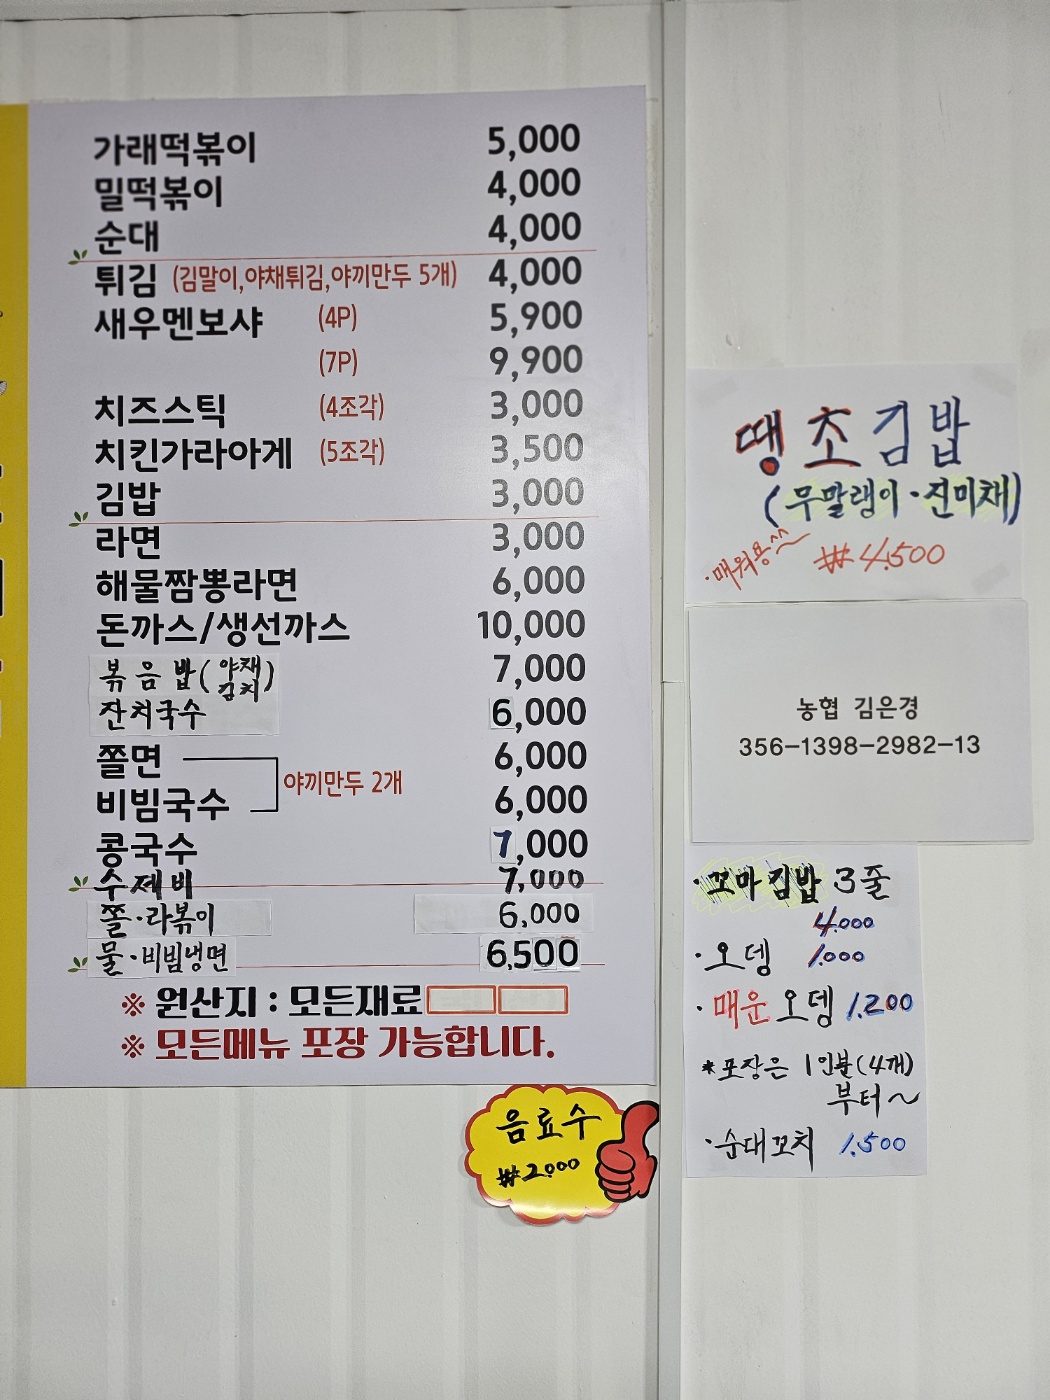 가래떡볶이 5,000
밀떡볶이 4,000
순대 4,000
튀김 (김말이,야채튀김,야끼만두 5개) 4,000
새우멘보샤 (4P) 5,900
(7P) 9,900
치즈스틱 (4조각) 3,000
치킨가라아게 (5조각) 3,500
김밥 3,000
라면 3,000
해물짬뽕라면 6,000
돈까스/생선까스 10,000
볶음밥(야채 김치) 7,000
잔치국수 6,000
쫄면 6,000
야끼만두 2개
비빔국수 6,000
콩국수 7,000
수제비 7,000
쫄·라볶이 6,000
물·비빔냉면 6,500
※ 원산지 : 모든재료
※ 모든메뉴 포장 가능합니다.
음료수
₩2000
땡초김밥
(무말랭이·진미채)
·매워용^^~
₩4,500
농협 김은경
356-1398-2982-13
·꼬마김밥 3줄
4.000
·오뎅 1.000
·매운오뎅 1.200
*포장은 1인분(4개)
부터~
·순대꼬치 1.500